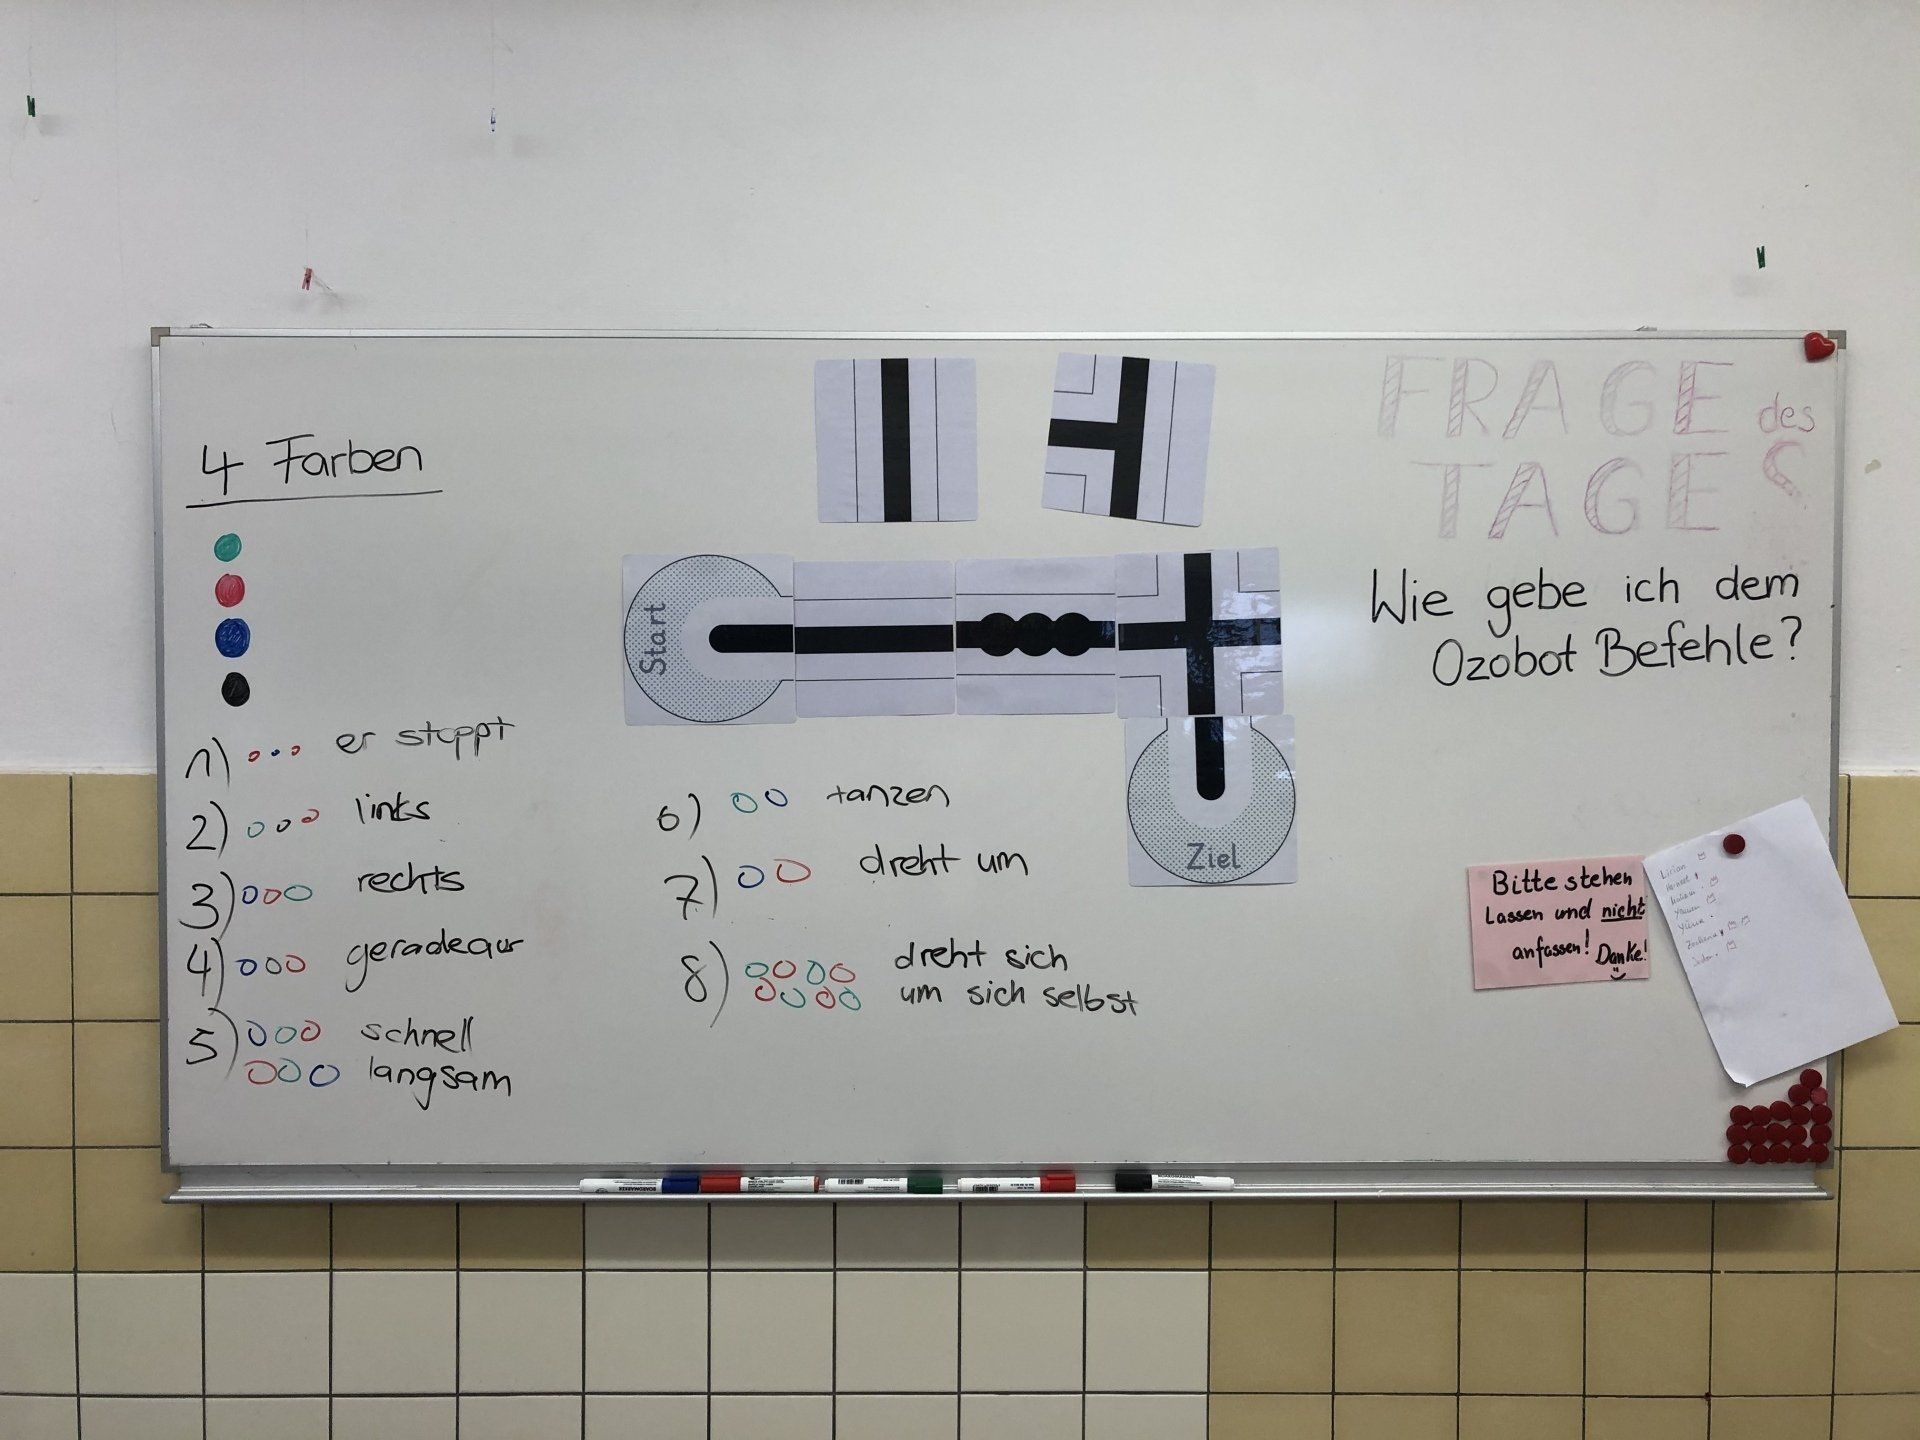 4 Farben
1) er stoppt
2) links
3) rechts
4) geradeaus
5) schnell
langsam
6) tanzen
7) dreht um
8) dreht sich
um sich selbst
Start
Ziel
FRAGE des
TAGES
Wie gebe ich dem
Ozobot Befehle?
Bitte stehen
Lassen und nicht
anfassen! Danke!